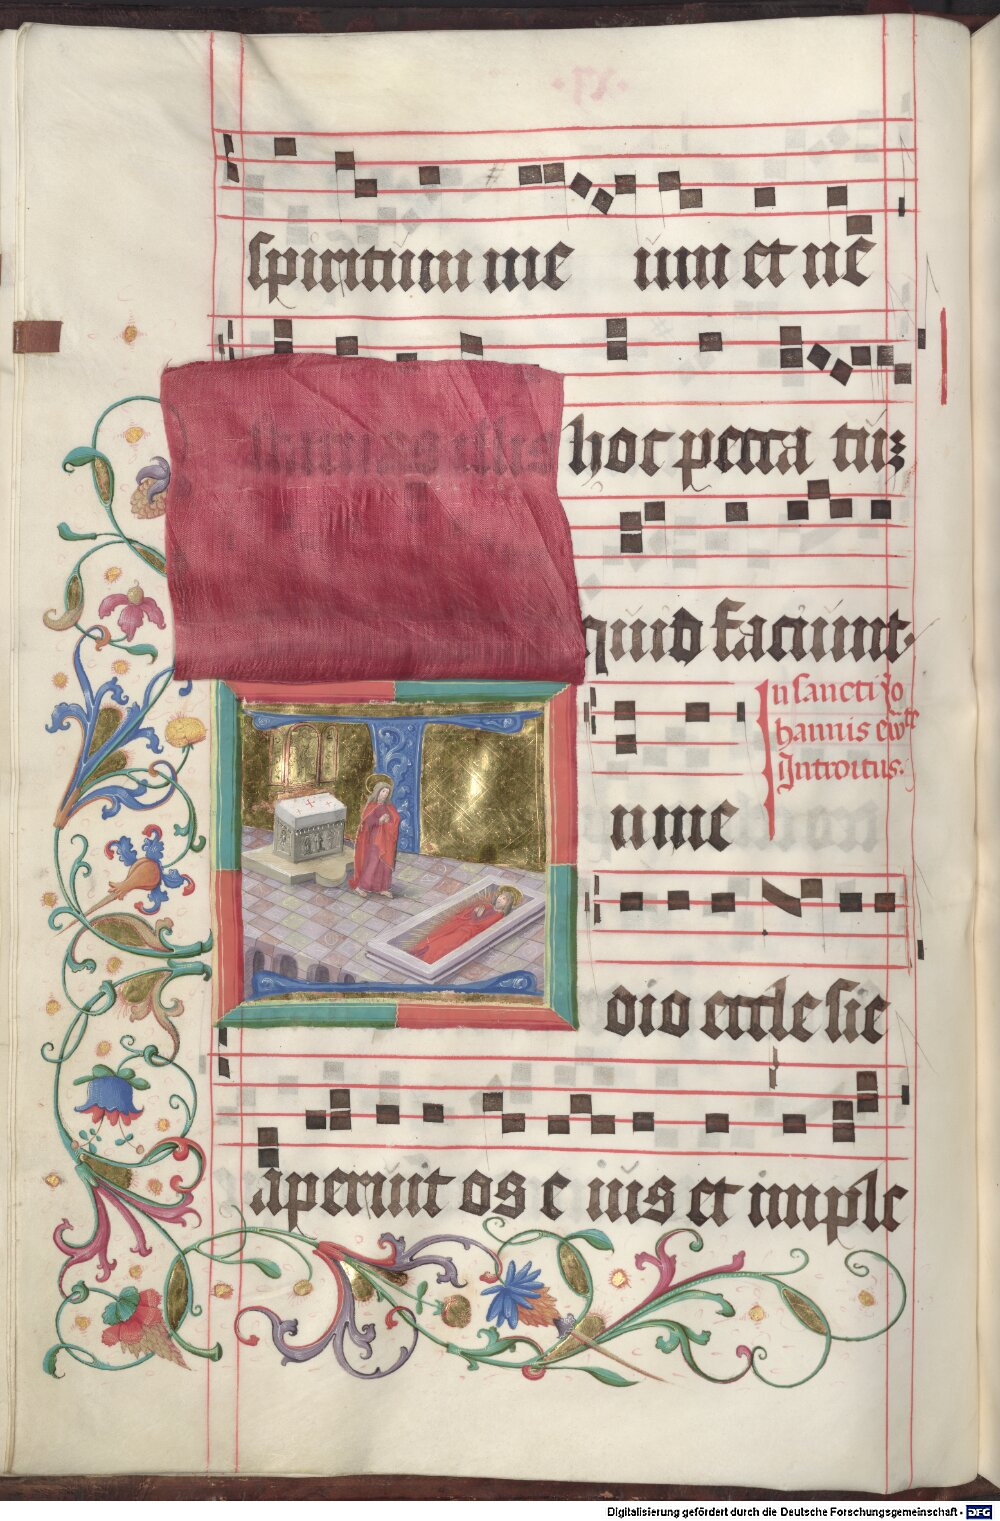 ·IX·
spiritum me um et ne
statuas illis hoc pecca tu͂ꝫ
quid faciunt.
In sancti Jo
hannis
Introitus.
n me
dio ecclesie
aperuit os e ius et imple
Digitalisierung gefördert durch die Deutsche Forschungsgemeinschaft - DFG